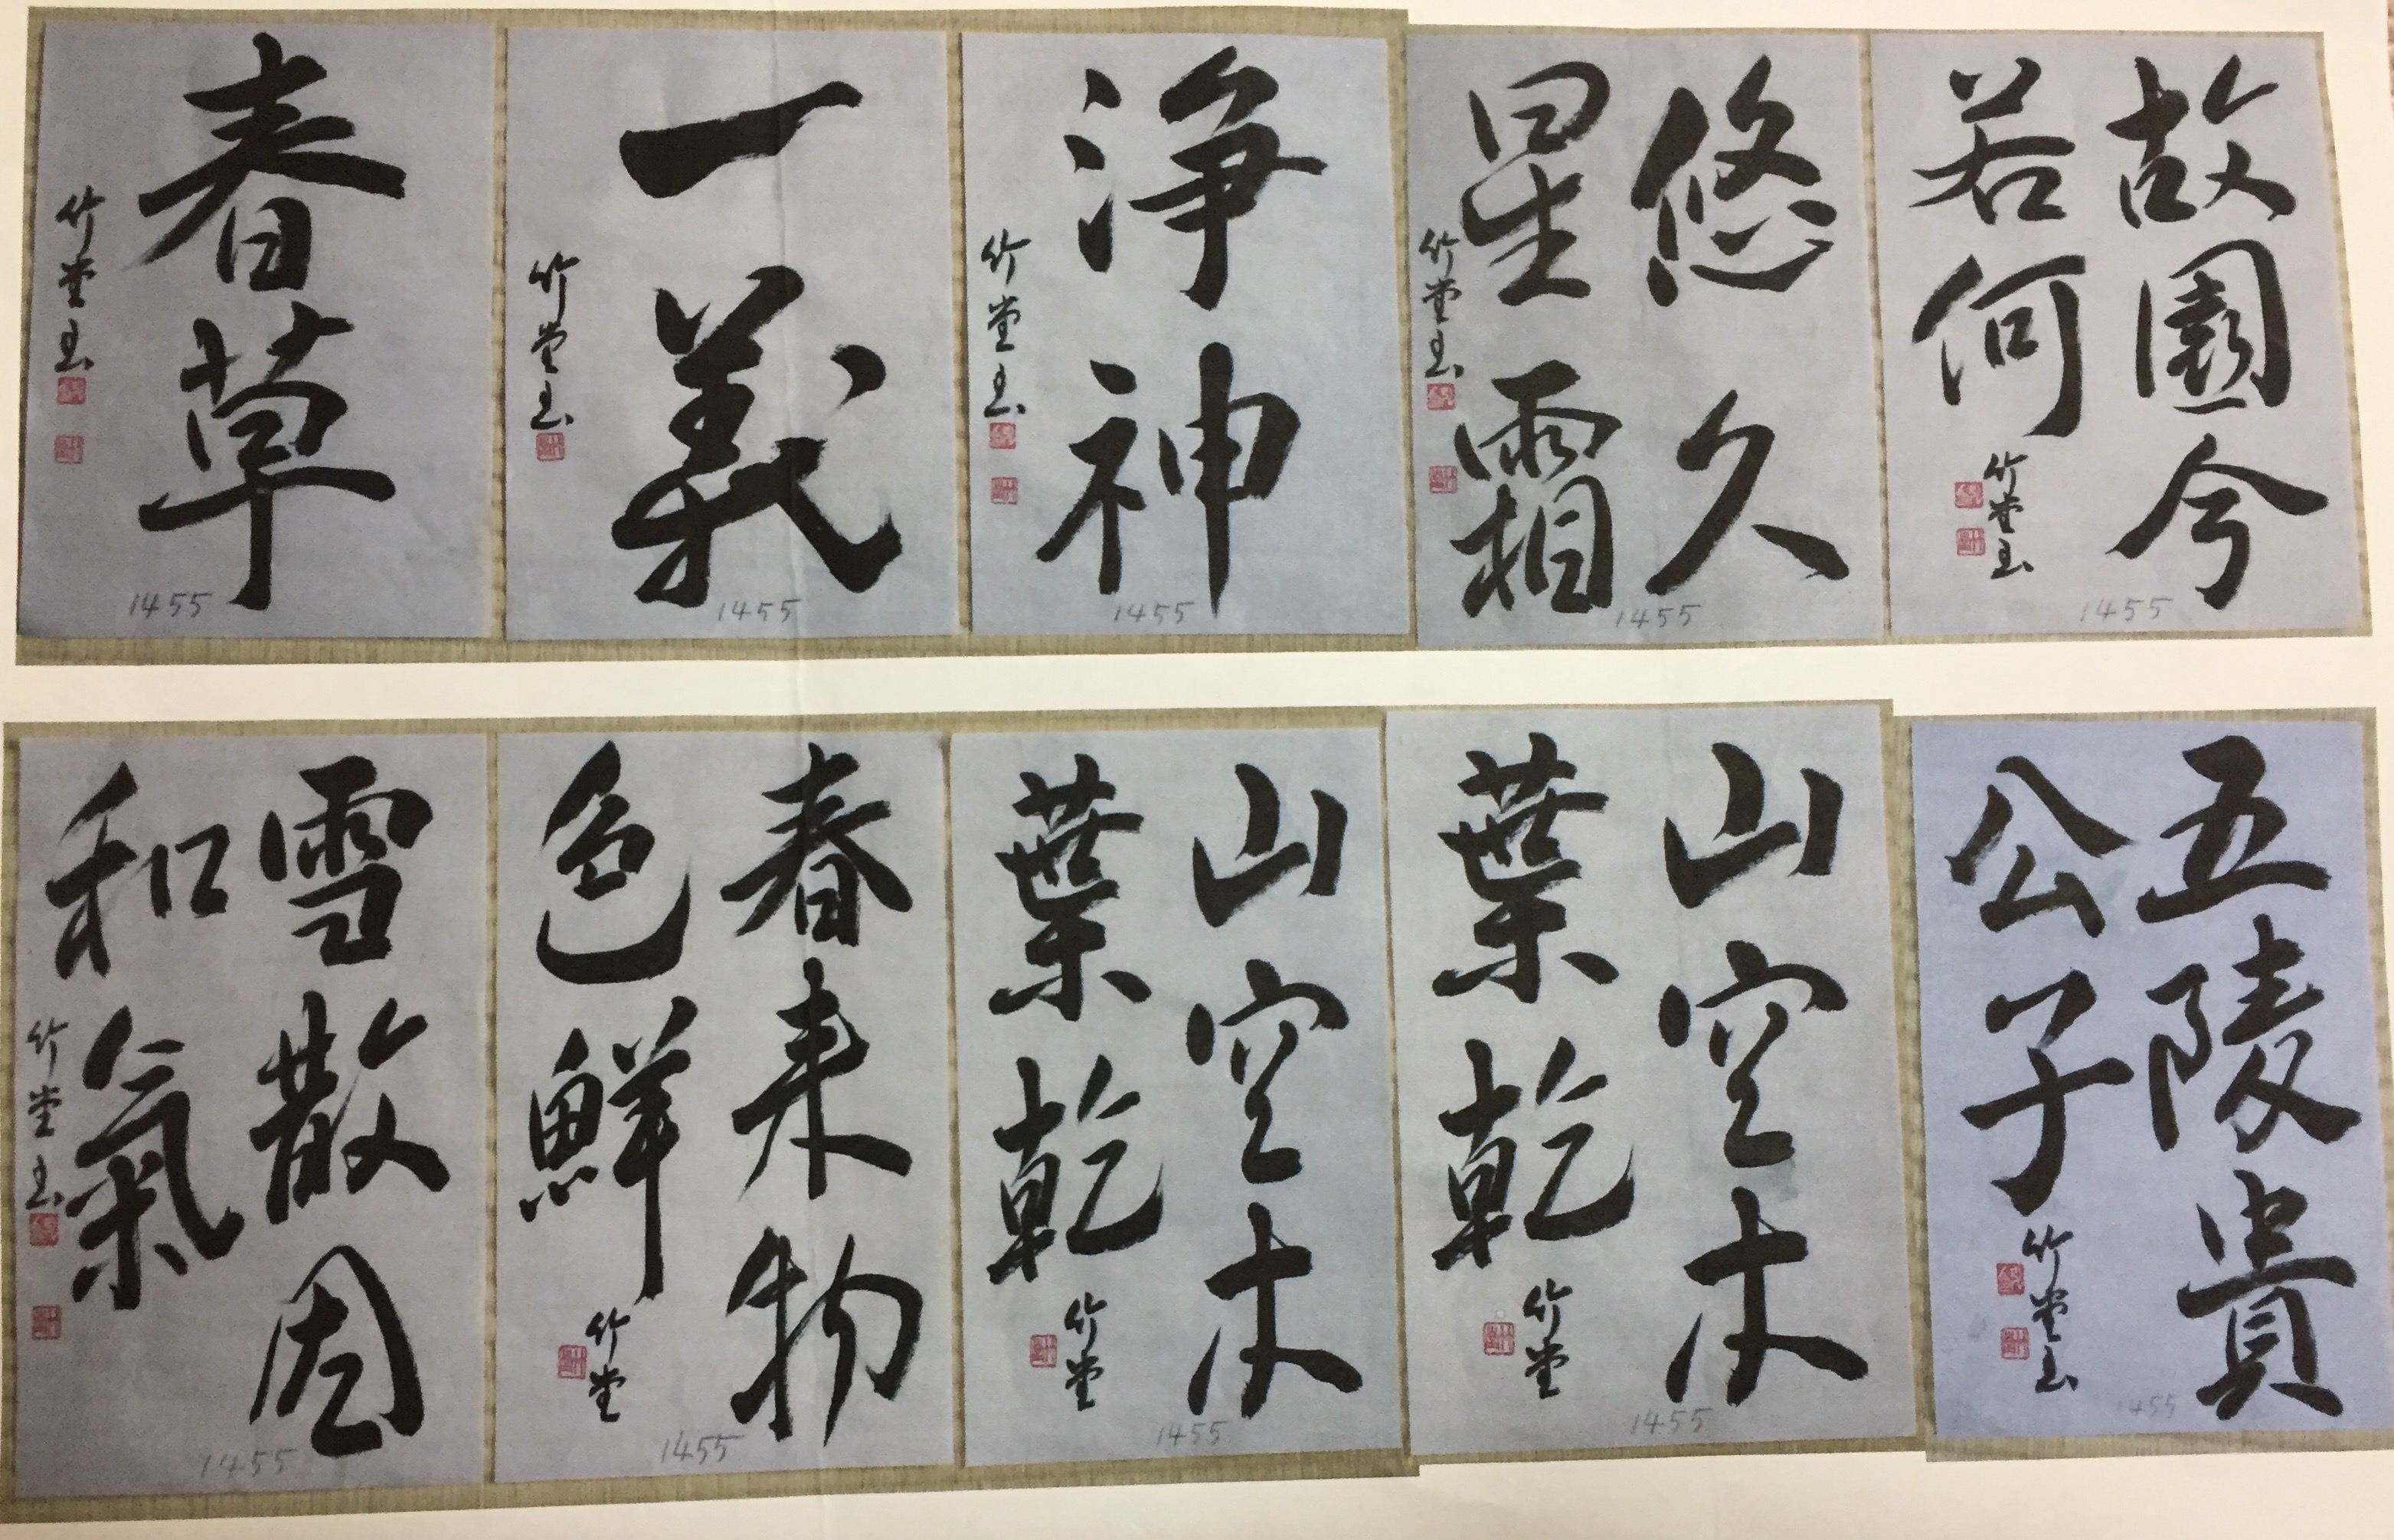 故園今
若何
竹堂
1455
悠久
星霜
竹堂
1455
浄神
竹堂
1455
一義
竹堂
1455
春草
竹堂
1455
五陵貴
公子
竹堂
1455
山空木
葉乾
竹堂
1455
山空木
葉乾
竹堂
1455
春来物
色鮮
竹堂
1455
雪散因
和氣
竹堂
1455